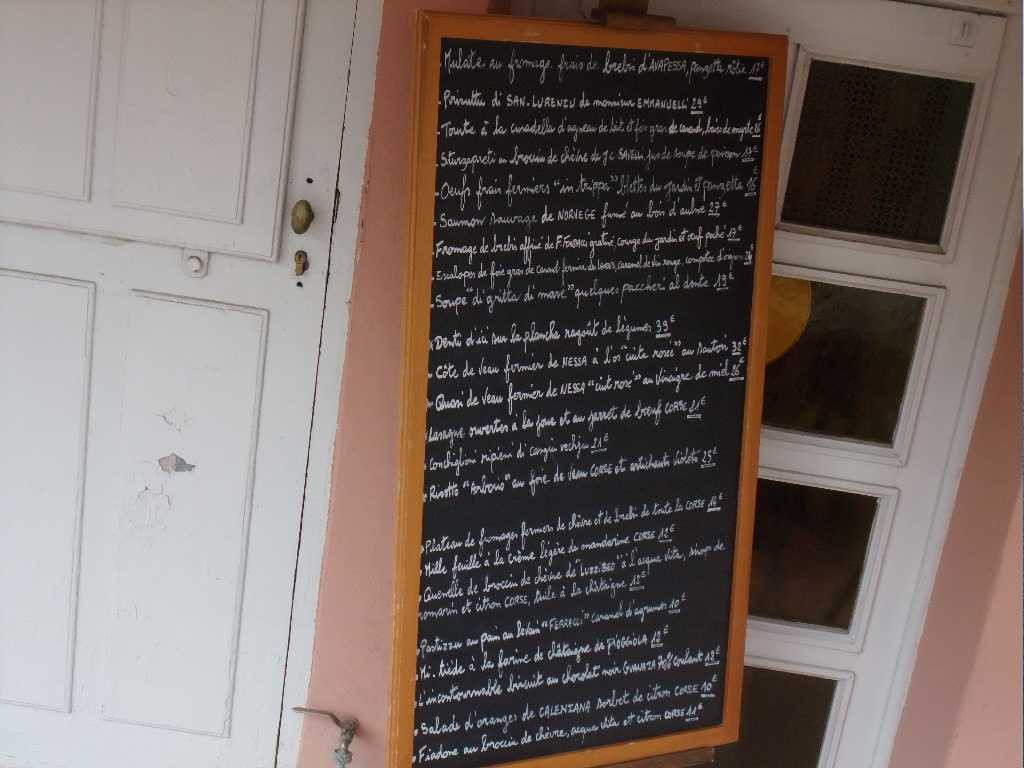 Mulate au fromage frais de brebis d'AVAPESSA, panzetta rôtie 17€
Prisuttu di SAN-LURENZU de monsieur EMMANUELLI 29€
Tourte à la curadella d'agneau de lait et foie gras de canard, baies de myrte
Sturzapreti au brocciu de chèvre du JC SAVELLI, jus de soupe de poisson
Oeufs frais fermiers "in trippa" blettes du jardin et panzetta 16€
Saumon sauvage de NORVEGE fumé au bois d'aulne 27€
Fromage de brebis affiné de F. gratiné, courge du jardin et oeuf poché 17€
Escalopes de foie gras de canard fermier des Landes, caramel de vin rouge, compotée d'oignons
Soupe "di gritta di mare" quelques paccheri al dente 19€
Denti d'ici sur la plancha ragoût de légumes 39€
Côte de Veau fermier de NESSA à l'os "cuite rosée" au sautoir 32€
Quasi de Veau fermier de NESSA "cuit rosé" au Vinaigre de miel 26€
Lasagne ouvertes à la joue et au jarret de boeuf CORSE 21€
Conchiglioni ripieni di casgiu vechju 21€
Risotto "Arborio" au foie de Veau CORSE et artichauts violets 25€
Plateau de fromages fermiers de chèvre et de brebis de toute la CORSE 14€
Mille feuille à la crème légère de mandarine CORSE 12€
Quenelle de brocciu de chèvre de "LUZZIBEO" à l'acqua vita, sirop de
romarin et citron CORSE, tuile à la châtaigne 12€
Pastizzu au pain au levain "FERRACCI" caramel d'agrumes 10€
Mi-tiède à la farine de châtaigne de PIOGGIOLA 12€
L'incontournable biscuit au chocolat noir GUANAJA 70% coulant 12€
Salade d'oranges de CALENZANA sorbet de citron CORSE 10€
Fiadone au brocciu de chèvre, acqua vita et citron CORSE 11€